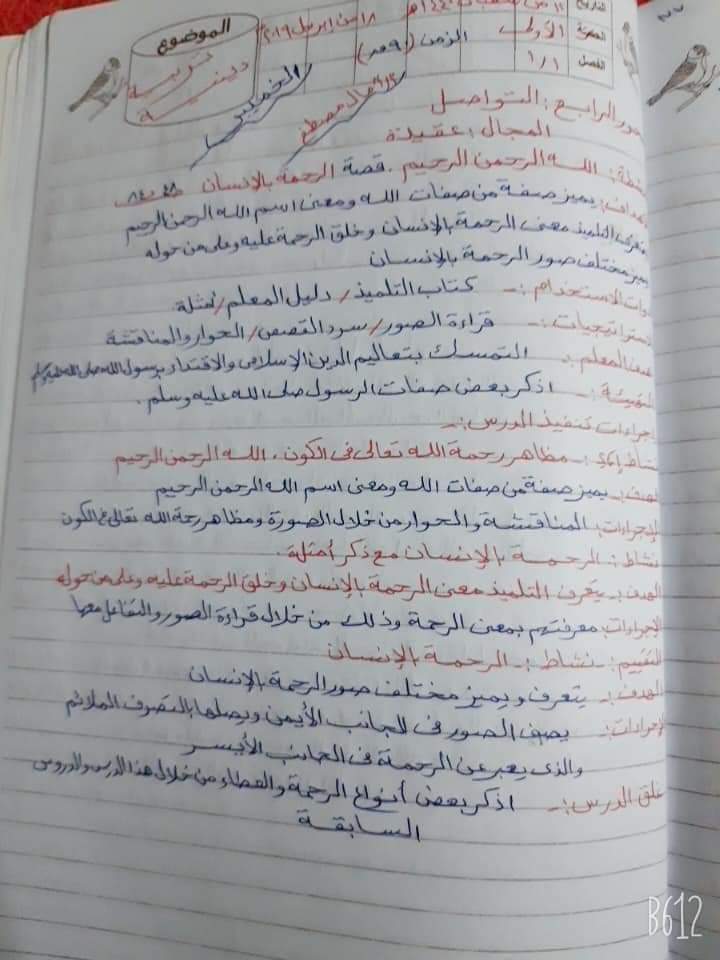 التاريخ ١٢ من شعبان ١٤٤٠هـ ١٨ من إبريل ٢٠١٩
الحصة الأولى الزمن (٩٠ق)
الفصل ١/١
الموضوع
تربية
دينية
الخميس
المحور الرابع: التواصل
المجال: عقيدة
أنشطة: الله الرحمن الرحيم. قصة الرحمة بالإنسان
أهداف: يميز صفة من صفات الله ومعنى اسم الله الرحمن الرحيم
يتعرف التلميذ معنى الرحمة بالإنسان وخلق الرحمة عليه وعلى من حوله
يميز مختلف صور الرحمة بالإنسان
أدوات الاستخدام:- كتاب التلميذ/ دليل المعلم/ أمثلة.
استراتيجيات:- قراءة الصور/ سرد القصص/ الحوار والمناقشة
هدف المعلم:- التمسك بتعاليم الدين الإسلامى والاقتداء برسول الله صلى الله عليه وسلم
التهيئة:- اذكر بعض صفات الرسول صلى الله عليه وسلم.
إجراءات تنفيذ الدرس:-
نشاط :- مظاهر رحمة الله تعالى فى الكون. الله الرحمن الرحيم
الهدف:- يميز صفة من صفات الله ومعنى اسم الله الرحمن الرحيم
الإجراءات: المناقشة والحوار من خلال الصورة ومظاهر رحمة الله تعالى فى الكون
نشاط:- الرحمة بالإنسان مع ذكر أمثلة.
الهدف:- يتعرف التلميذ معنى الرحمة بالإنسان وخلق الرحمة عليه وعلى من حوله
الإجراءات: معرفتهم بمعنى الرحمة وذلك من خلال قراءة الصور والتفاعل معها
التقييم:- نشاط:- الرحمة بالإنسان
الهدف:- يتعرف ويميز مختلف صور الرحمة بالإنسان
الإجراءات:- يصف الصور فى الجانب الأيمن ويصلها بالتصرف الملائم
والذى يعبر عن الرحمة فى الجانب الأيسر
غلق الدرس:- اذكر بعض أنواع الرحمة والعطاء من خلال هذا الدرس والدروس
السابقة
B612